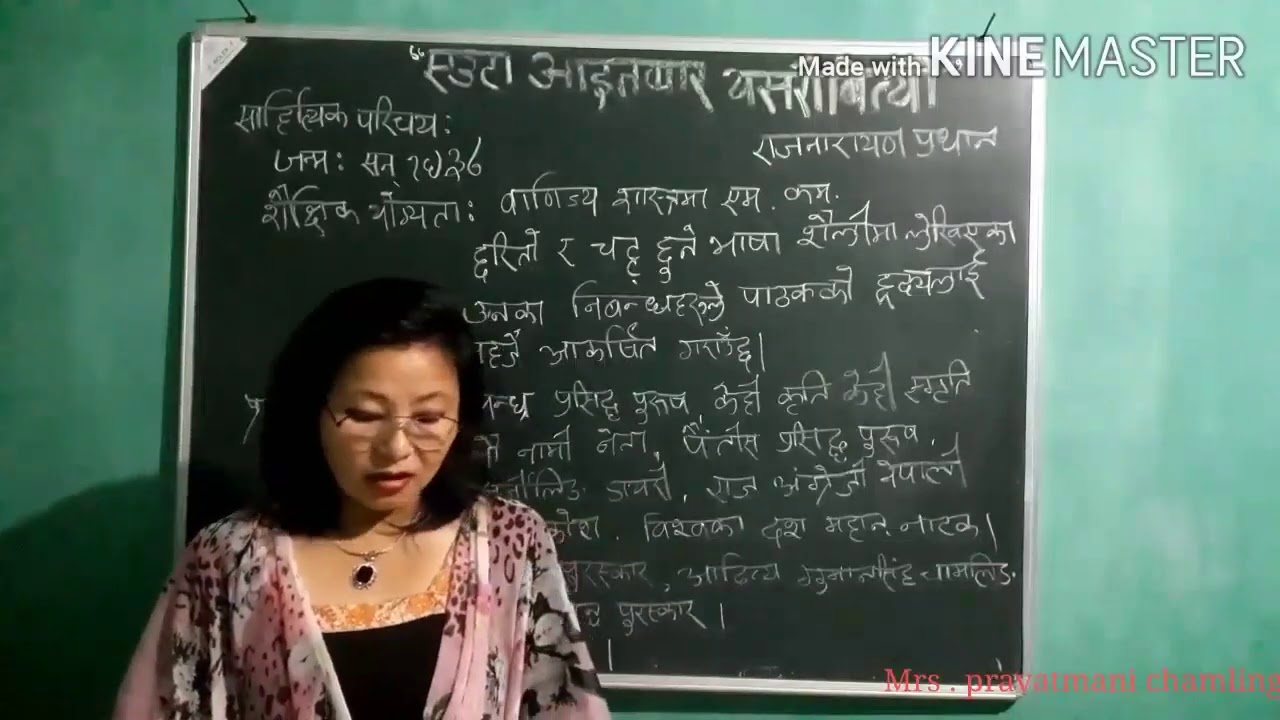 "एउटा आइतबार यसरी बित्यो"
Made with KINEMASTER
साहित्यिक परिचय:
राजनारायण प्रधान
जन्म: सन् १९३६
शैक्षिक योग्यता: वाणिज्य शास्त्रमा एम. कम.
छरितो र चट्ट छुने भाषा शैलीमा लेखिएका
उनका निबन्धहरूले पाठकको हृदयलाई
आकर्षित गराउँछ।
प्रसिद्ध पुरूष, केही कृति केही स्मृति
नामी नेता, पैंतीस प्रसिद्ध पुरूष,
डायरी, राज अंग्रेजी नेपाली
विश्वका दश महान नाटक।
पुरस्कार, आदित्य चामलिङ
पुरस्कार।
Mrs . prayatmani chamling